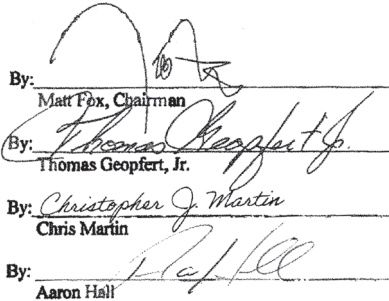 By:
Matt Fox, Chairman
By: Thomas Geopfert Jr.
Thomas Geopfert, Jr.
By: Christopher J. Martin
Chris Martin
By:
Aaron Hall